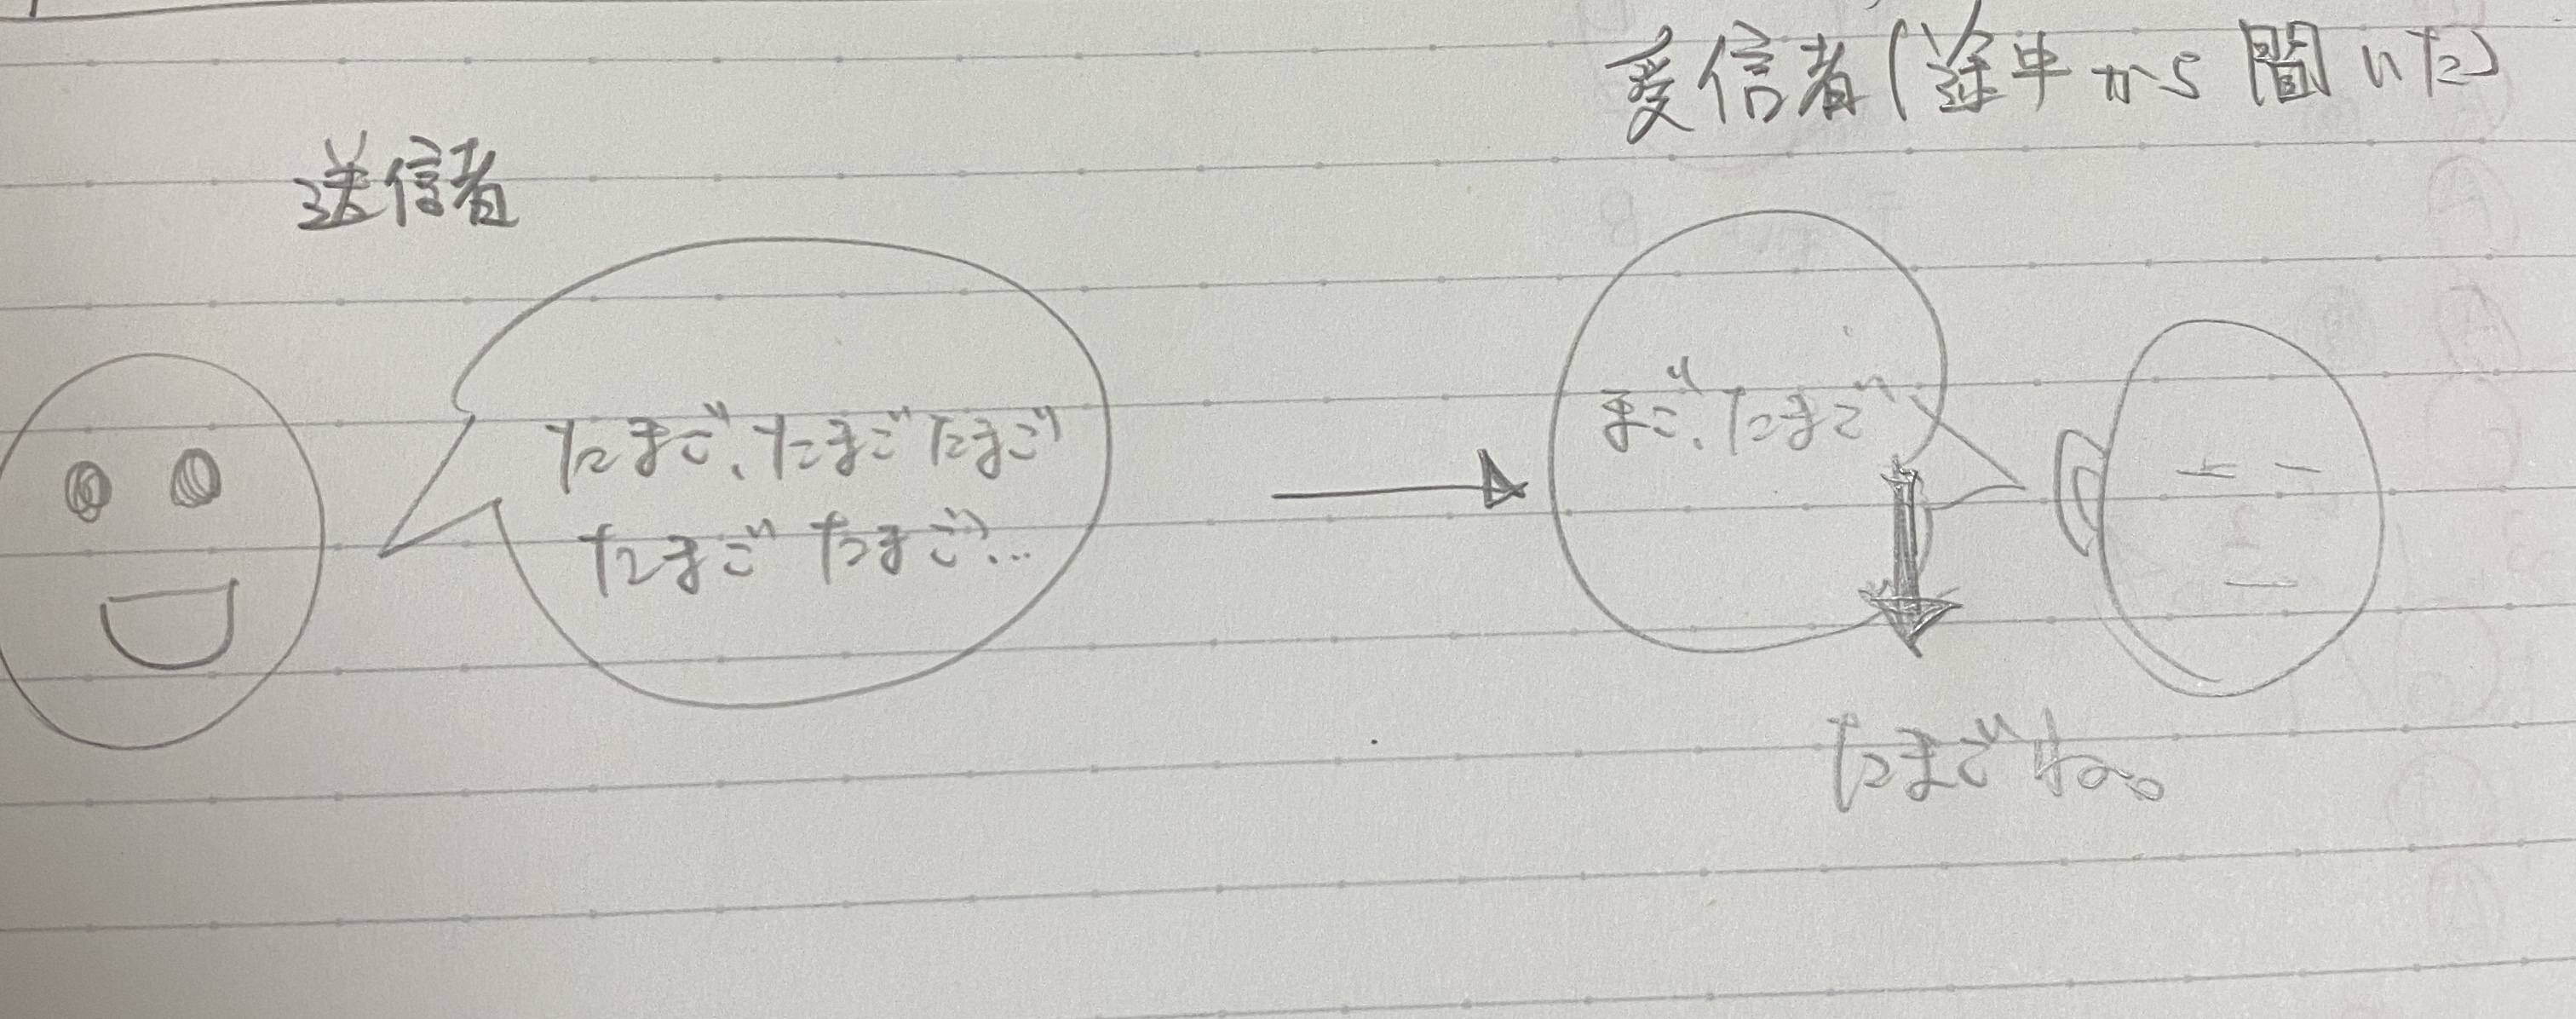 送信者
たまご、たまごたまご
たまご たまご…
受信者(途中から聞いた)
まご、たまご
たまごね。